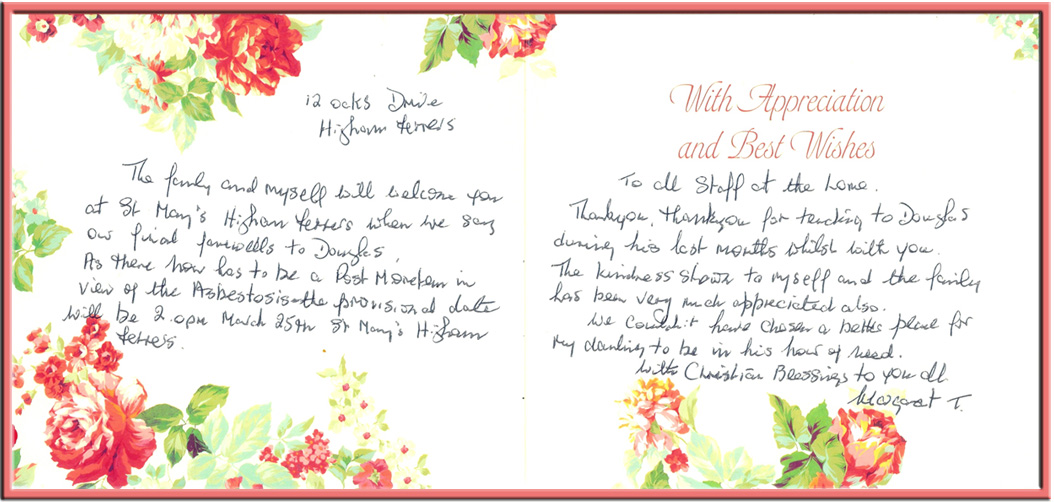 12 ocks Drive
Higham Ferrers
The family and myself will welcome you
at St Mary's Higham Ferrers when we say
our final farewells to Douglas,
As there now has to be a Post Mortem in
view of the Asbestosis the provisional date
will be 2.0pm March 25th St Mary's Higham
Ferrers.
With Appreciation
and Best Wishes
To all Staff at the home.
Thankyou, thankyou for tending to Douglas
during his last months whilst with you.
The kindness shown to myself and the family
has been very much appreciated also.
We couldn't have chosen a better place for
my darling to be in his hour of need.
With Christian Blessings to you all
Margaret T.